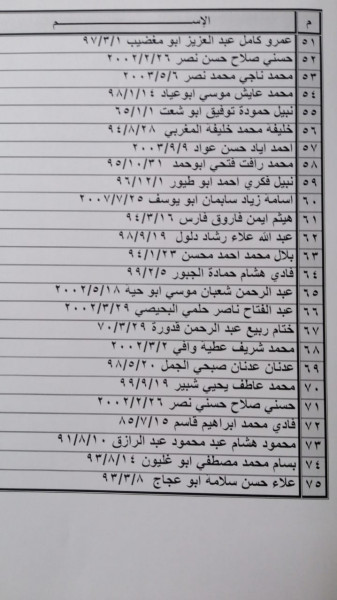 م الإســـــــم
٥١ عمرو كامل عبد العزيز ابو مغضيب ٩٧/٣/١
٥٢ حسني صلاح حسن نصر ٢٠٠٢/٢/٢٦
٥٣ محمد ناجي محمد نصر ٢٠٠٣/٥/٦
٥٤ محمد عايش موسي ابوعياد ٩٨/١/١٤
٥٥ نبيل حمودة توفيق ابو شعت ٦٥/١/١
٥٦ خليفه محمد خليفه المغربي ٩٤/٨/٢٨
٥٧ احمد اياد حسن عواد ٢٠٠٣/٩/٩
٥٨ محمد رافت فتحي ابوحمد ٩٥/١٠/٣١
٥٩ نبيل فكري احمد ابو طيور ٩٦/١٢/١
٦٠ اسامه زياد سليمان ابو يوسف ٢٠٠٧/٧/٢٥
٦١ هيثم ايمن فاروق فارس ٩٤/٣/١٦
٦٢ عبد الله علاء رشاد دلول ٩٨/٩/١٩
٦٣ بلال محمد احمد محسن ٩٤/١/٢٣
٦٤ فادي هشام حمادة الجبور ٩٩/٢/٥
٦٥ عبد الرحمن شعبان موسي ابو حيه ٢٠٠٢/٥/١٨
٦٦ عبد الفتاح ناصر حلمي البحيصي ٢٠٠٢/٣/٢٩
٦٧ ختام ربيع عبد الرحمن قدورة ٧٠/٣/٢٩
٦٨ محمد شريف عطيه وافي ٢٠٠٢/٣/٢
٦٩ عدنان عدنان صبحي الجمل ٩٨/٥/٢٠
٧٠ محمد عاطف يحيي شبير ٩٩/٩/١٩
٧١ حسني صلاح حسني نصر ٢٠٠٢/٢/٢٦
٧٢ فادي محمد ابراهيم قاسم ٨٥/٧/١٥
٧٣ محمود هشام عبد محمود عبد الرازق ٩١/٨/١٠
٧٤ بسام محمد مصطفي ابو غليون ٩٣/٨/١٤
٧٥ علاء حسن سلامه ابو عجاج ٩٣/٣/٨